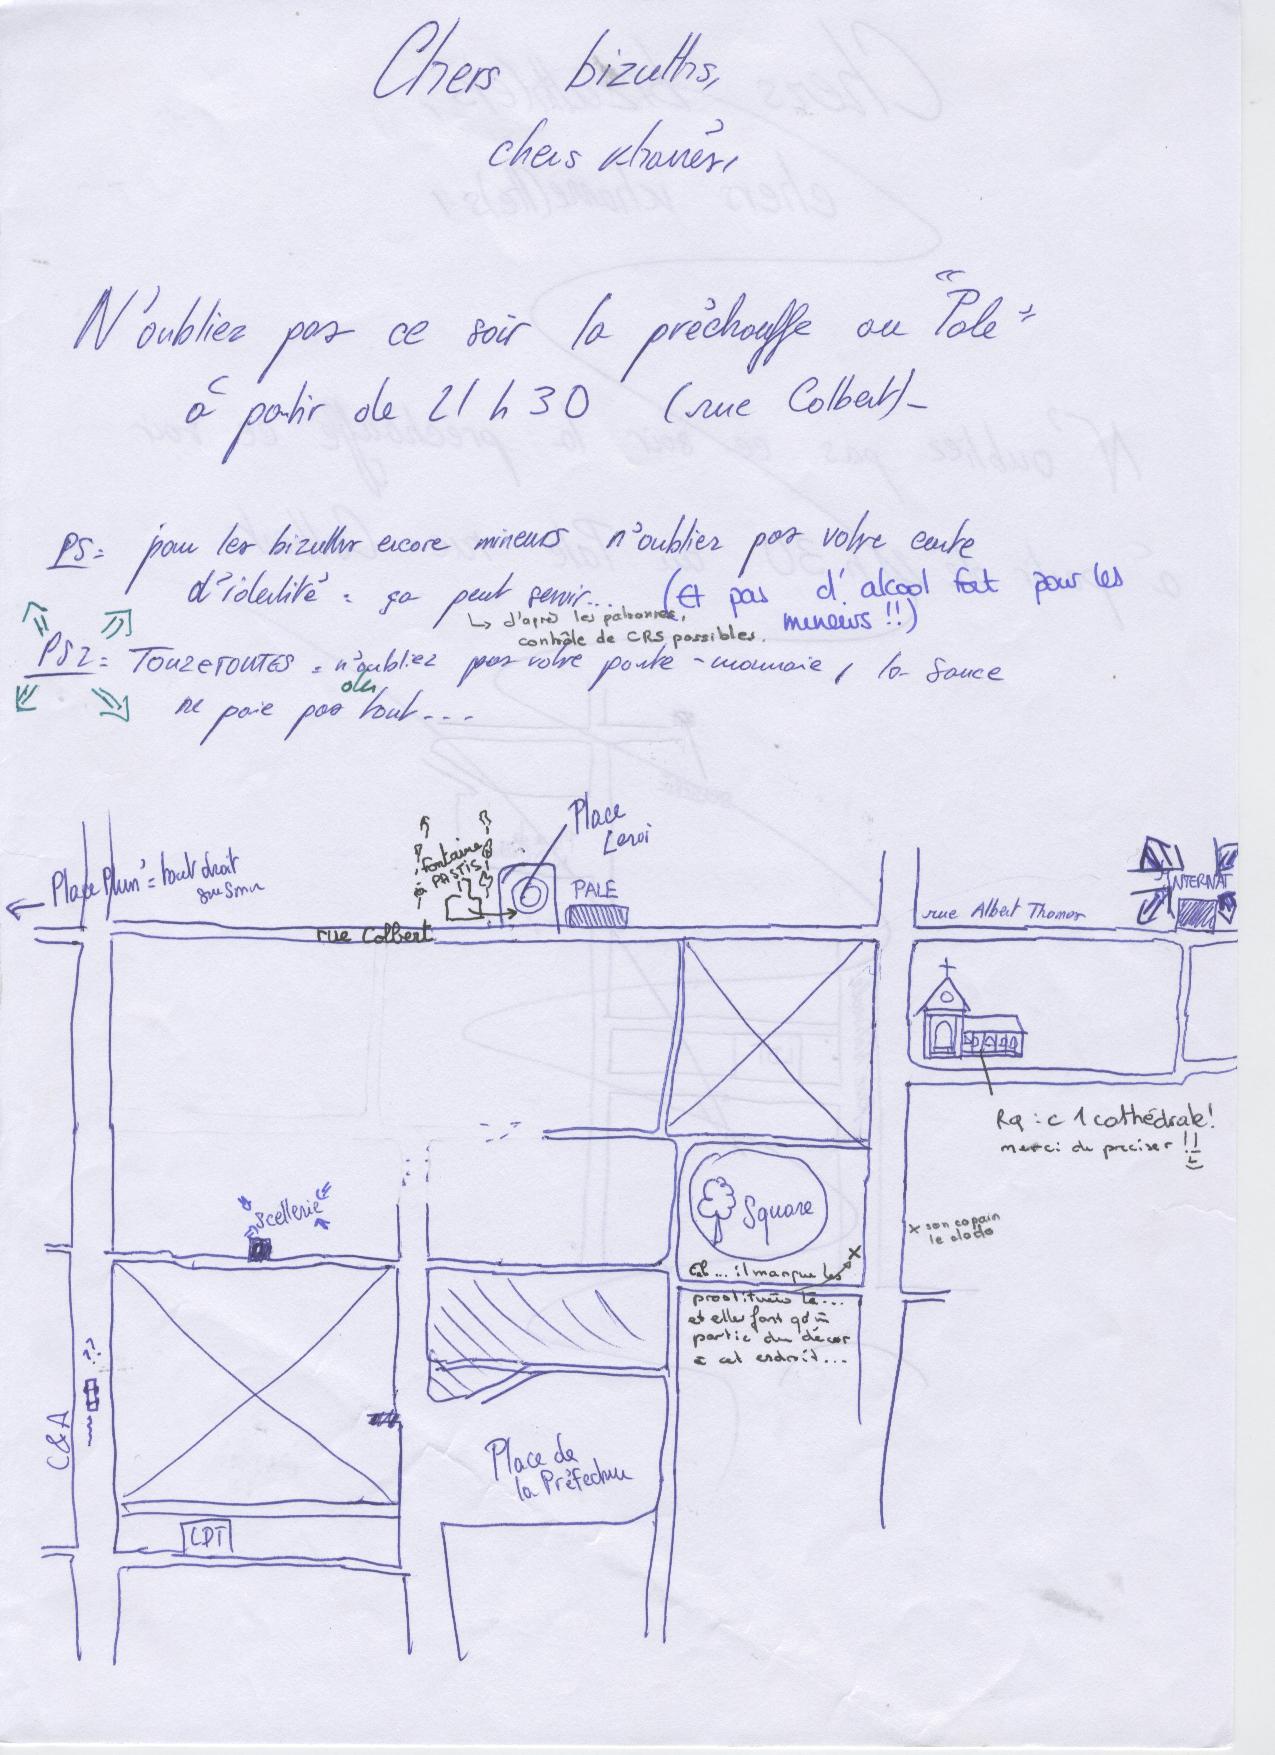 Chers bizuths,
chers kharrés,
N'oubliez pas ce soir la préchauffe au "Pale"
à partir de 21 h 30 (rue Colbert)_
PS= pour les bizuths encore mineurs n'oubliez pas votre carte
d'identité = ça peut servir... (Et pas d'alcool fort pour les
mineurs !!)
↳ d'après les patronnes,
contrôle de CRS possibles.
PS2= TOUZEROUTES = n'oubliez pas votre porte-monnaie, la sauce
ne paie pas tout...
Place Plum' = tout droit
sur 5mn
fontaine
à PASTIS!
Place
Leroi
PALE
rue Colbert
rue Albert Thomas
INTERNAT
Rq : c 1 cathédrale!
merci de préciser !!
Scellerie
Square
x son copain
le clodo
Euh... il manque les
prostituées là...
et elle font qd m̂
partie du décor
à cet endroit...
??
C&A
Place de
la Préfecture
LDT